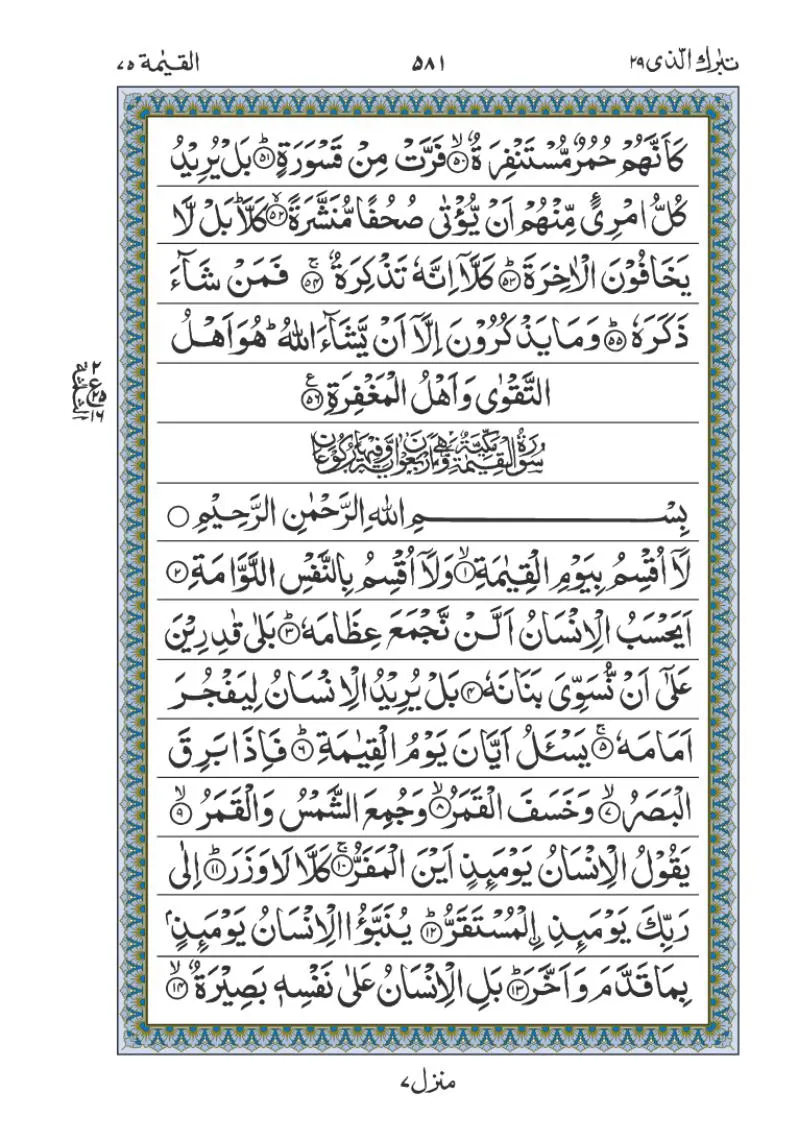 تبٰرك الّذى ٢٩
٥٨١
القيٰمة ٧٥
كَاَنَّهُمْ حُمُرٌ مُّسْتَنْفِرَةٌ ۙ‏﴿٥٠﴾ فَرَّتْ مِنْ قَسْوَرَةٍ ؕ‏﴿٥١﴾ بَلْ يُرِيْدُ
كُلُّ امْرِئٍ مِّنْهُمْ اَنْ يُّؤْتٰى صُحُفًا مُّنَشَّرَةً ۙ‏﴿٥٢﴾ كَلَّا ؕ بَلْ لَّا
يَخَافُوْنَ الْاٰخِرَةَ ؕ‏﴿٥٣﴾ كَلَّاۤ اِنَّهٗ تَذْكِرَةٌ ۚ‏﴿٥٤﴾ فَمَنْ شَآءَ
ذَكَرَهٗ ؕ‏﴿٥٥﴾ وَمَا يَذْكُرُوْنَ اِلَّاۤ اَنْ يَّشَآءَ اللّٰهُ ؕ هُوَ اَهْلُ
التَّقْوٰى وَاَهْلُ الْمَغْفِرَةِ ‏﴿٥٦﴾ ع
٢
ع
٢٥
١٦
الثلثة
سُوْرَةُ الْقِيٰمَةِ مَكِّيَّةٌ وَّهِىَ اَرْبَعُوْنَ اٰيَةً وَّفِيْهَا رُكُوْعَانِ
بِسْــــــــــــــمِ اللّٰهِ الرَّحْمٰنِ الرَّحِيْمِ ○
لَاۤ اُقْسِمُ بِيَوْمِ الْقِيٰمَةِ ۙ‏﴿١﴾ وَلَاۤ اُقْسِمُ بِالنَّفْسِ اللَّوَّامَةِ ‏﴿٢﴾
اَيَحْسَبُ الْاِنْسَانُ اَلَّنْ نَّجْمَعَ عِظَامَهٗ ؕ‏﴿٣﴾ بَلٰى قٰدِرِيْنَ
عَلٰٓى اَنْ نُّسَوِّىَ بَنَانَهٗ ‏﴿٤﴾ بَلْ يُرِيْدُ الْاِنْسَانُ لِيَفْجُرَ
اَمَامَهٗ ۚ‏﴿٥﴾ يَسْـَٔلُ اَيَّانَ يَوْمُ الْقِيٰمَةِ ؕ‏﴿٦﴾ فَاِذَا بَرِقَ
الْبَصَرُ ۙ‏﴿٧﴾ وَخَسَفَ الْقَمَرُ ۙ‏﴿٨﴾ وَجُمِعَ الشَّمْسُ وَالْقَمَرُ ۙ‏﴿٩﴾
يَقُوْلُ الْاِنْسَانُ يَوْمَىِٕذٍ اَيْنَ الْمَفَرُّ ۚ‏﴿١٠﴾ كَلَّا لَا وَزَرَ ؕ‏﴿١١﴾ اِلٰى
رَبِّكَ يَوْمَىِٕذِ ۨالْمُسْتَقَرُّ ؕ‏﴿١٢﴾ يُنَبَّؤُا الْاِنْسَانُ يَوْمَىِٕذٍۭ
بِمَا قَدَّمَ وَاَخَّرَ ؕ‏﴿١٣﴾ بَلِ الْاِنْسَانُ عَلٰى نَفْسِهٖ بَصِيْرَةٌ ۙ‏﴿١٤﴾
منزل ٧